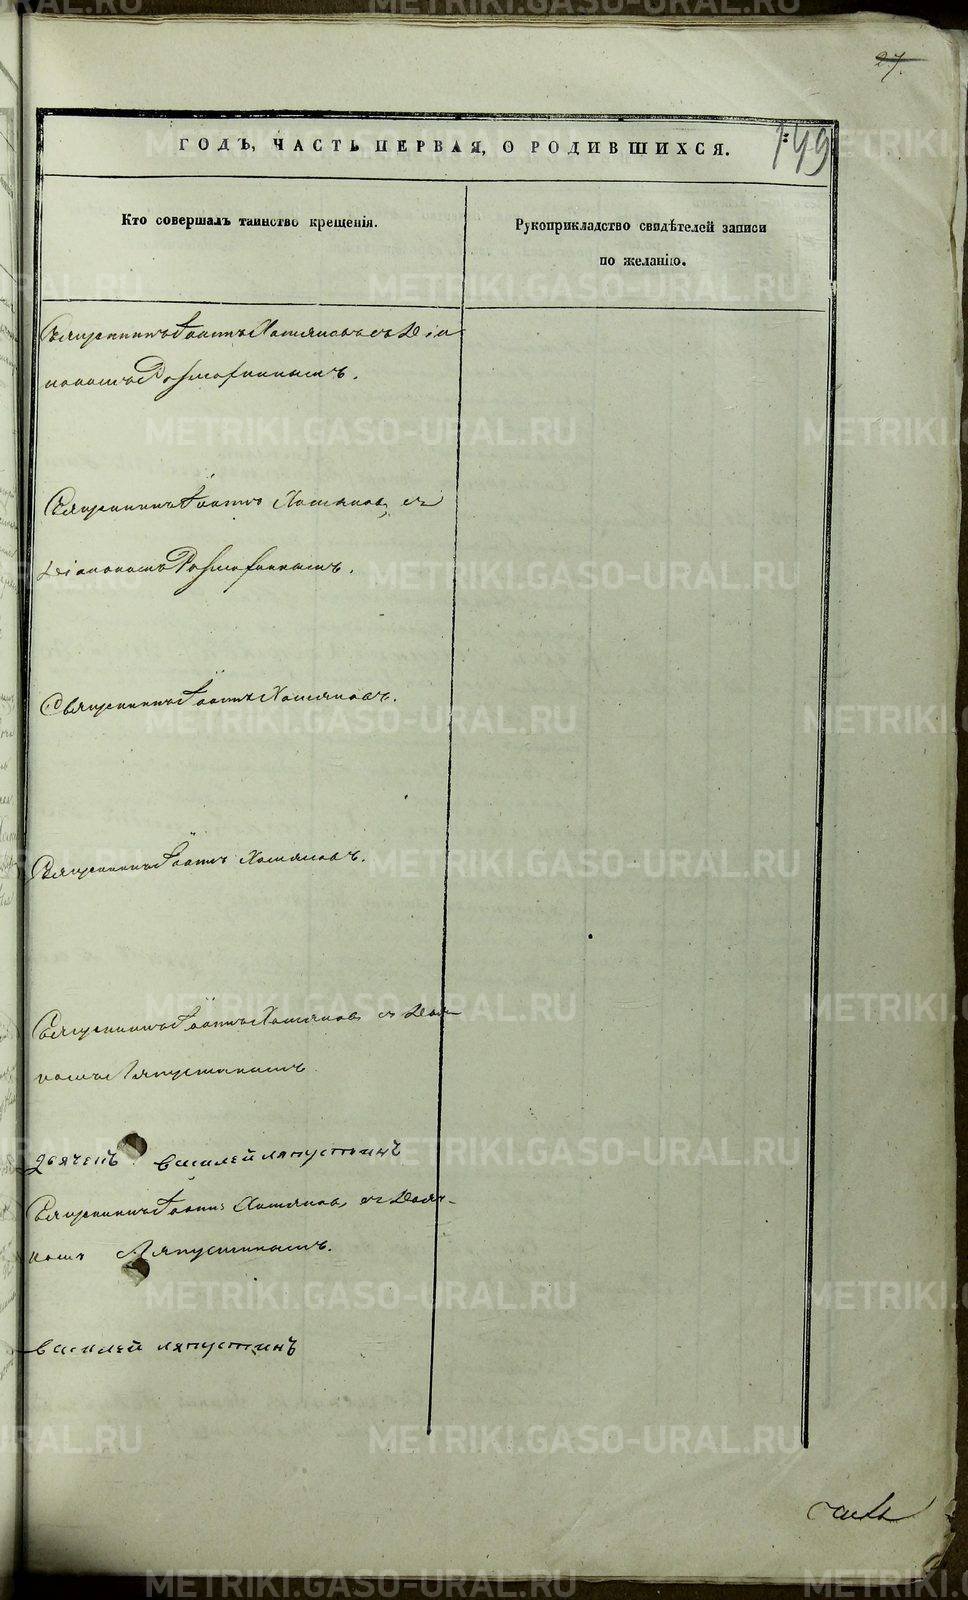 27.
149
ГОДЪ, ЧАСТЬ ПЕРВАЯ, О РОДИВШИХСЯ.
Кто совершалъ таинство крещенія.
Рукоприкладство свидѣтелей записи
по желанію.
Священникъ Іоаннъ Хотяновъ съ Діа
кономъ
Священникъ Іоаннъ Хотяновъ, съ
Діакономъ
Священникъ Іоаннъ Хотяновъ.
Священникъ Іоаннъ Хотяновъ.
Священникъ Іоаннъ Хотяновъ съ Дья-
комъ Ляпустинымъ
Дьячекъ василей ляпустинъ
Священникъ Іоаннъ Хотяновъ, съ Дьяч-
комъ Ляпустинымъ.
василей ляпустинъ
METRIKI.GASO-URAL.RU